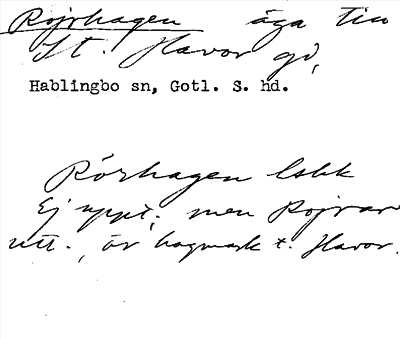 Rojrhagen äga till
St. Havor gd,
Hablingbo sn, Gotl. S. hd.
Rörhagen lskk
Ej uppt., men Rojrar
utt., är hagmark t. Havor.